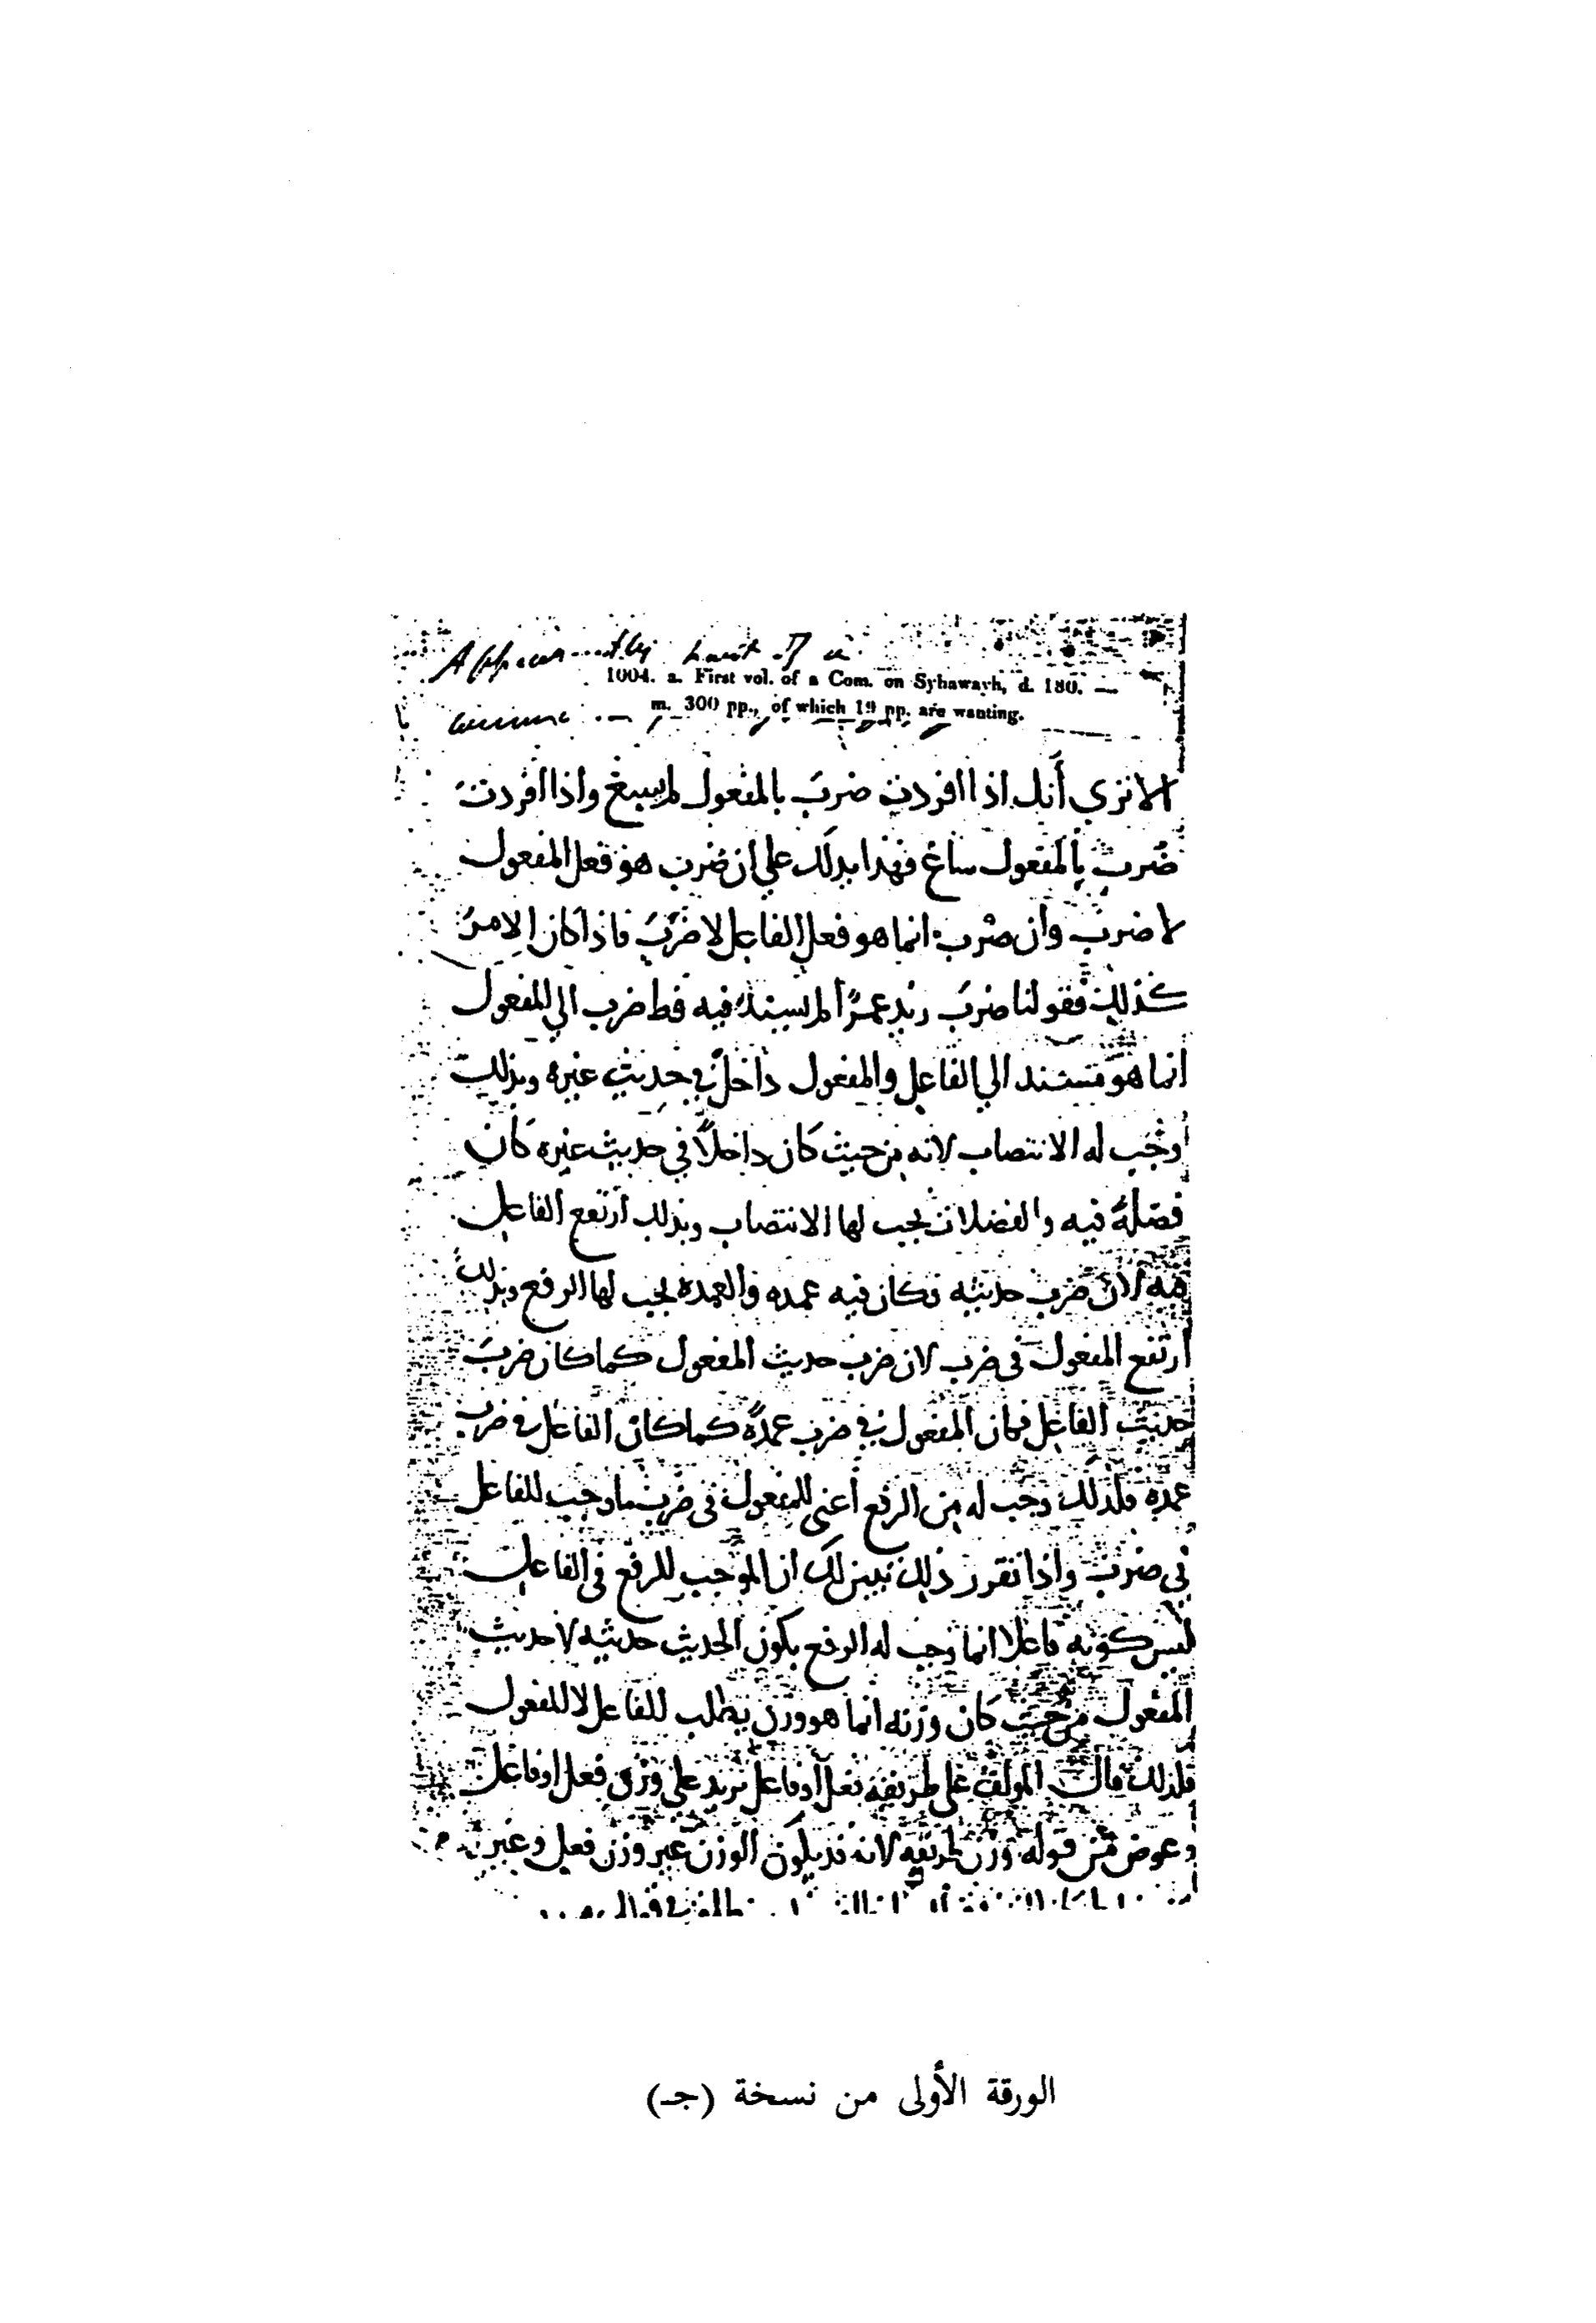 Apparently part of a
1004. a. First vol. of a Com. on Sybawayh, d. 180. —
m. 300 pp., of which 19 pp. are wanting.
الا تري أنك اذا افردت ضربَ بالمفعول لم يسغ واذا افردت
ضُرب بالمفعول ساغ فهذا يدلك علي ان ضُرب هو فعل المفعول
لا ضرب وان ضرب انما هو فعل الفاعل لا ضُرب فاذا كان الامرُ
كذلك فقولنا ضربَ زيد عمرًا لم يسند فيه قط ضرب الي المفعول
انما هو مستند الي الفاعل والمفعول داخل في حديث غيره وبذلك
وجب له الانتصاب لانه من حيث كان داخلاً في حديث غيره كان
فضلةً فيه والفضلات يجب لها الانتصاب وبذلك ارتفع الفاعل
فيه لان ضرب حديثه فكان فيه عمده والعمده يجب لها الرفع وبذلك
ارتفع المفعول في ضرب لان ضرب حديث المفعول كما كان ضربَ
حديث الفاعل فكان المفعول في ضرب عمدةً كما كان الفاعل في ضرب
عمدة فلذلك وجب له من الرفع أعني للمفعول في ضرب ما وجب للفاعل
في ضرب واذا تقرر ذلك تبين لك ان الموجب للرفع في الفاعل
ليس كونه فاعلا انما وجب له الرفع بكون الحديث حديثه لا حديث
المفعول من حيث كان وزنه انما هو وزن يطلب للفاعل لا للمفعول
فلذلك قال المولف علي طريقة فعل أو فاعل يريد علي وزن فعل او فاعل
وعوض من قوله وزن طريقة لانه قد يكون الوزن غير وزن فعل وغير
الورقة الأولى من نسخة (جـ)